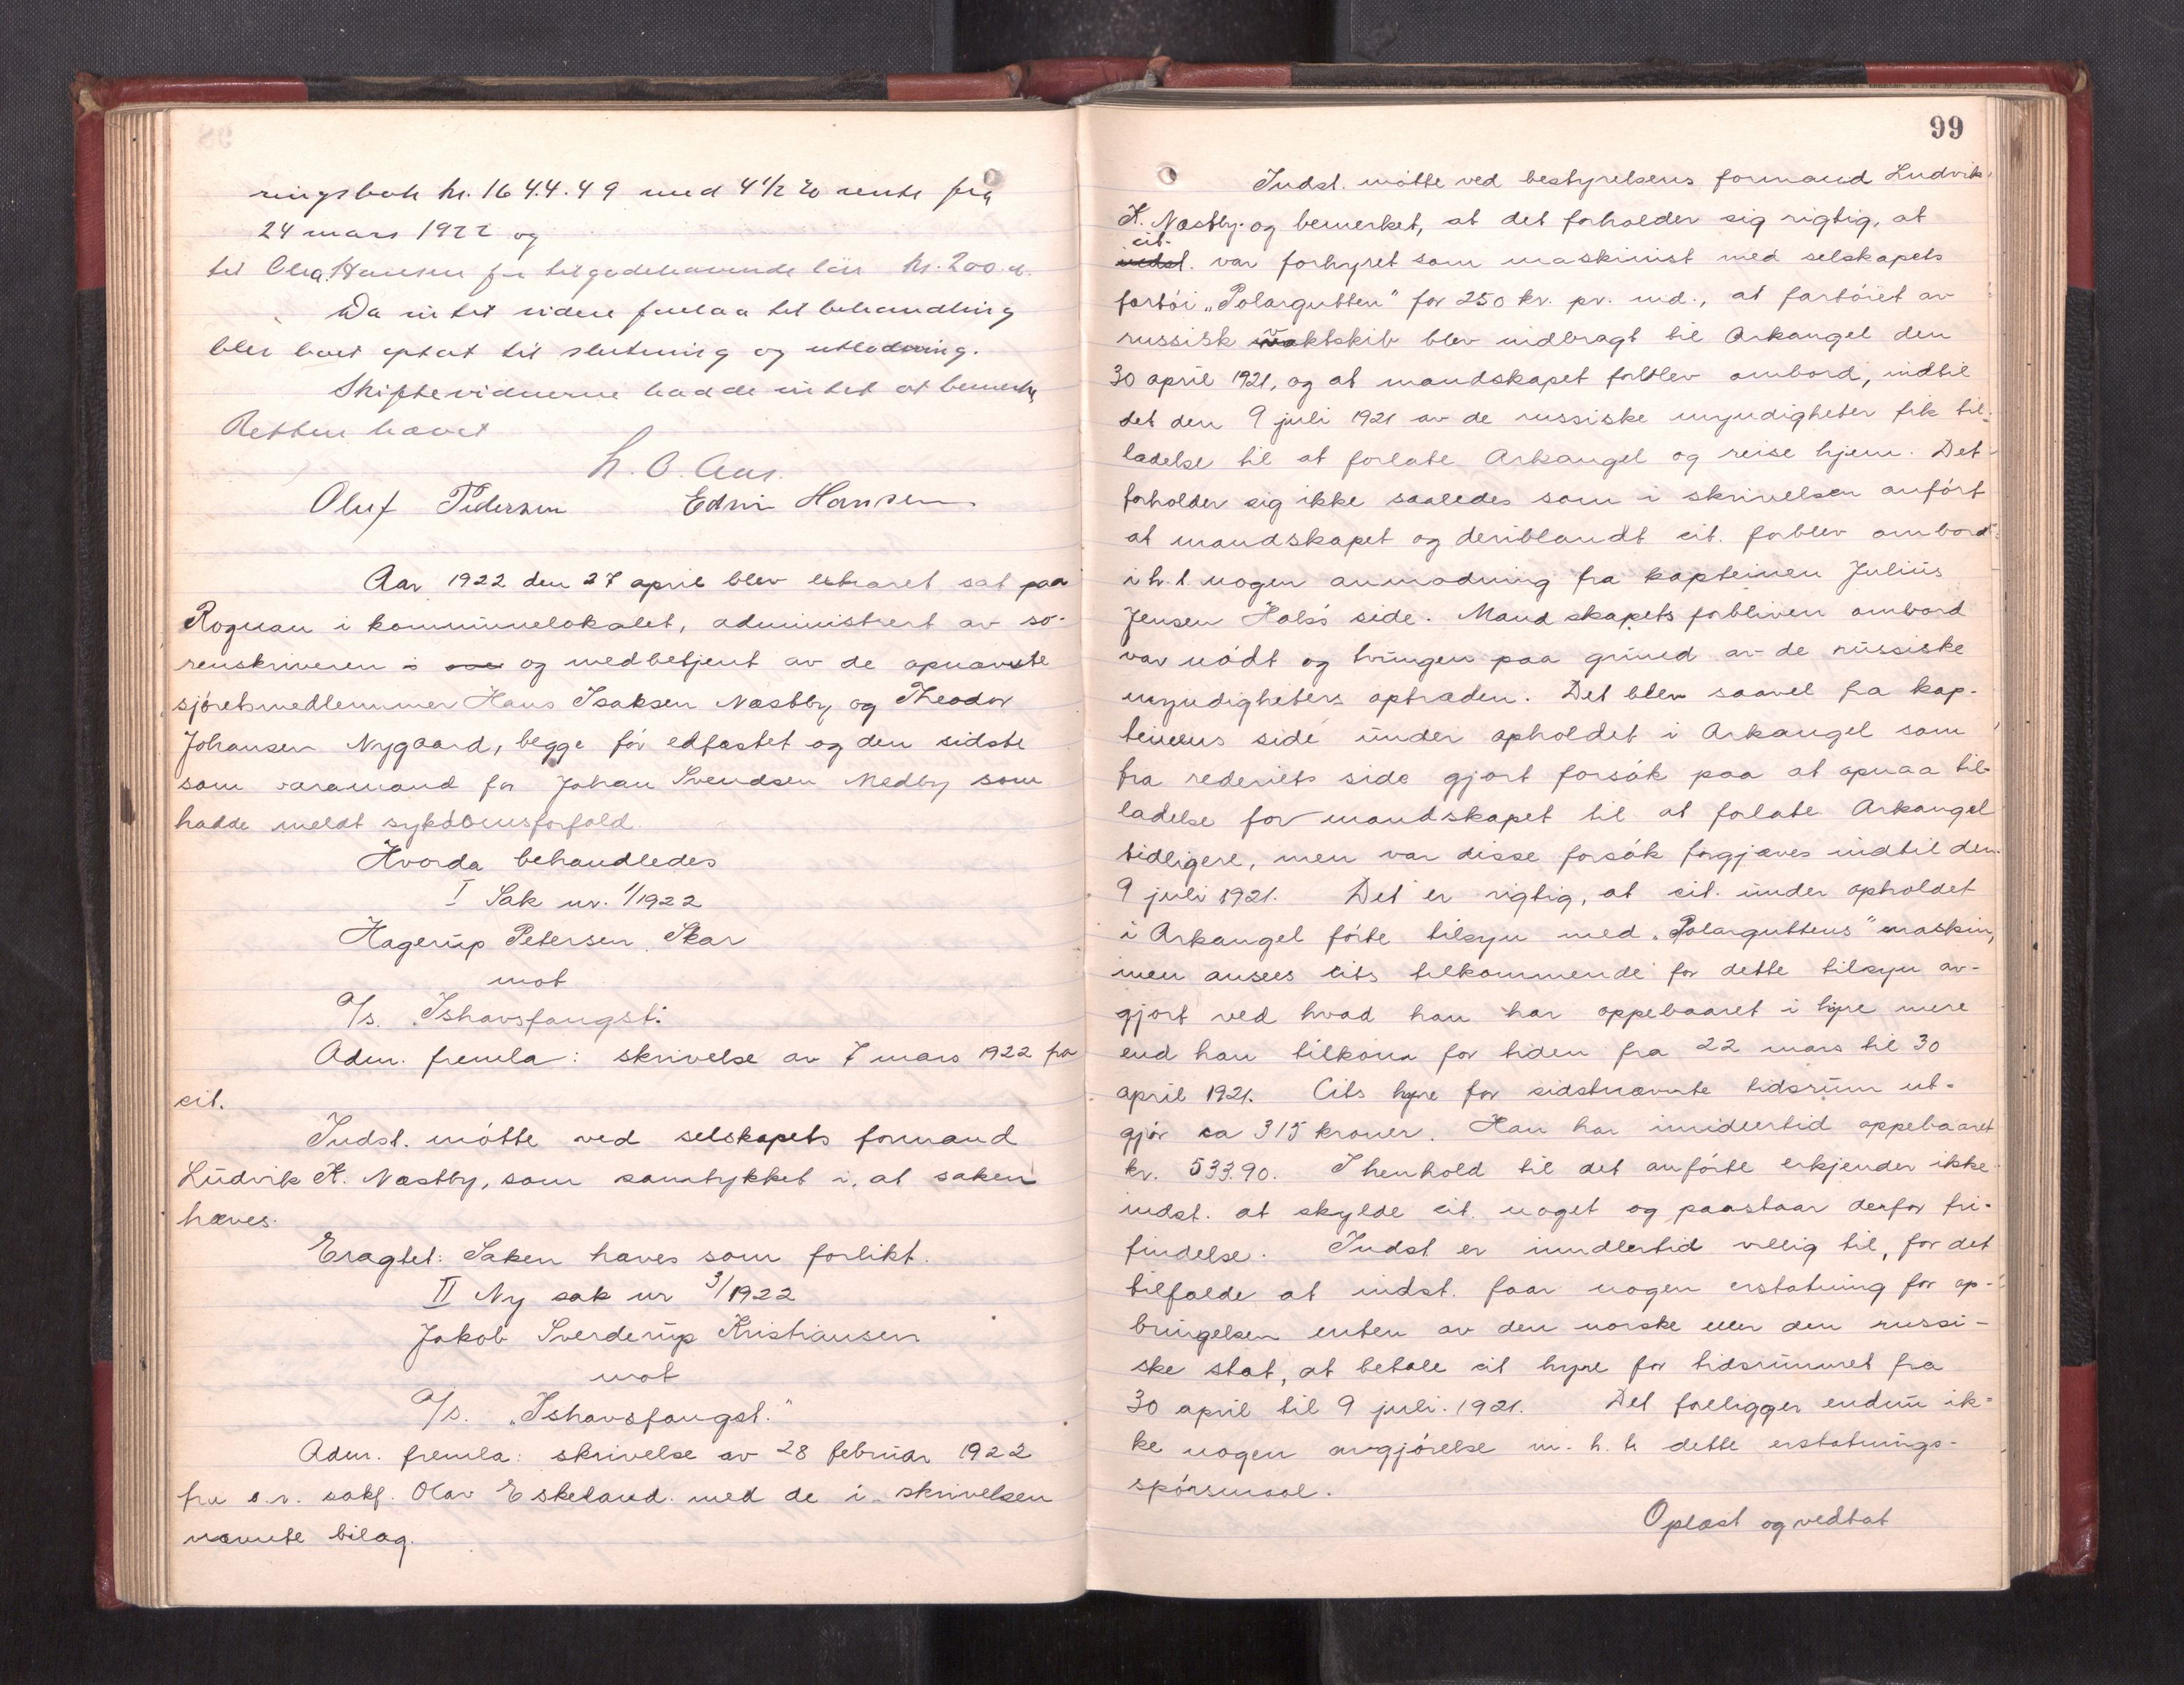 ringsbok kr. 1644.49 med 4 1/2 % rente fra
24 mars 1922 og
til Olea Hansen for tilgodehavende lön kr. 200.
Da intet videre forelaa til behandling
blev boet optat til slutning og utlodning.
Skiftevidnerne hadde intet at bemerke
Retten hævet
Oluf Pedersen Edvin Hansen
Aar 1922 den 27 april blev extraret sat paa
Rognan i kommunelokalet, administrert av so-
renskriveren og medbetjent av de opnævnte
sjöretsmedlemmer Hans Isaksen Næstby og Theodor
Johansen Nygaard, begge för edfæstet og den sidste
som varamand for Johan Svendsen Medby som
hadde meldt sykdomsforfald.
Hvorda behandledes
I Sak nr. 1/1922
Hagerup Petersen Skar
mot
A/S. Ishavsfangst:
Adm. fremla: skrivelse av 7 mars 1922 fra
cit.
Indst. mötte ved selskapets formand
Ludvik K. Næstby, som samtykket i, at saken
hæves.
Eragtet: Saken hæves som forlikt.
II Ny sak nr 3/1922
Jakob Sverderup Kristiansen
mot
A/S. "Ishavsfangst."
Adm. fremla: skrivelse av 28 februar 1922
fra o.r. sakf. Olav Eskeland med de i skrivelsen
nævnte bilag.
99
Indst. mötte ved bestyrelsens formand Ludvik
K. Næstby og bemerket, at det forholder sig rigtig, at
cit.
indst. var forhyret som maskinist med selskapets
fartöi "Polargutten" for 250 kr. pr. md., at fartöiet av
russisk vaktskib blev indbragt til Arkangel den
30 april 1921, og at mandskapet forblev ombord, indtil
det den 9 juli 1921 av de russiske myndigheter fik til-
ladelse til at forlate Arkangel og reise hjem. Det
forholder sig ikke saaledes som i skrivelsen anfört
at mandskapet og deriblandt cit. forblev ombord
i h. t. nogen anmodning fra kapteinen Julius
Jensen Hals's side. Mandskapets forbliven ombord
var nödt og tvungen paa grund av de russiske
myndigheters optræden. Det blev saavel fra kap-
teinens side under opholdet i Arkangel som
fra rederiets side gjort forsök paa at opnaa til-
ladelse for mandskapet til at forlate Arkangel
tidligere, men var disse forsök forgjæves indtil den
9 juli 1921. Det er rigtig, at cit. under opholdet
i Arkangel förte tilsyn med "Polarguttens" maskin,
men ansees cits tilkommende for dette tilsyn av-
gjort ved hvad han har oppebaaret i hyre mere
end han tilkom for tiden fra 22 mars til 30
april 1921. Cits hyre for sidstnævnte tidsrum ut-
gjör ca 315 kroner. Han har imidlertid oppebaaret
kr. 533.90. I henhold til det anförte erkjender ikke
indst. at skylde cit. noget og paastaar derfor fri-
findelse. Indst er imidlertid villig til, for det
tilfælde at indst. faar nogen erstatning for op-
bringelsen enten av den norske eller den russi-
ske stat, at betale cit hyre for tidsrummet fra
30 april til 9 juli 1921. Det foreligger endnu ik-
ke nogen avgjörelse m. h. t. dette erstatnings-
spörsmaal.
Oplæst og vedtat